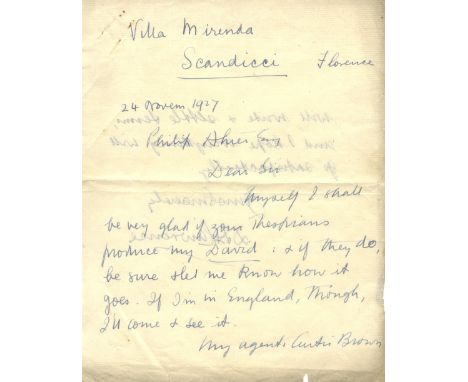 Villa Mirenda
Scandicci Florence
24 Novem 1927
Philip Esq
Dear Sir
Myself I shall
be very glad if your Thespians
produce my David: & if they do,
be sure & let me know how it
goes. If I'm in England, though,
I'll come & see it.
My agents Curtis Brown